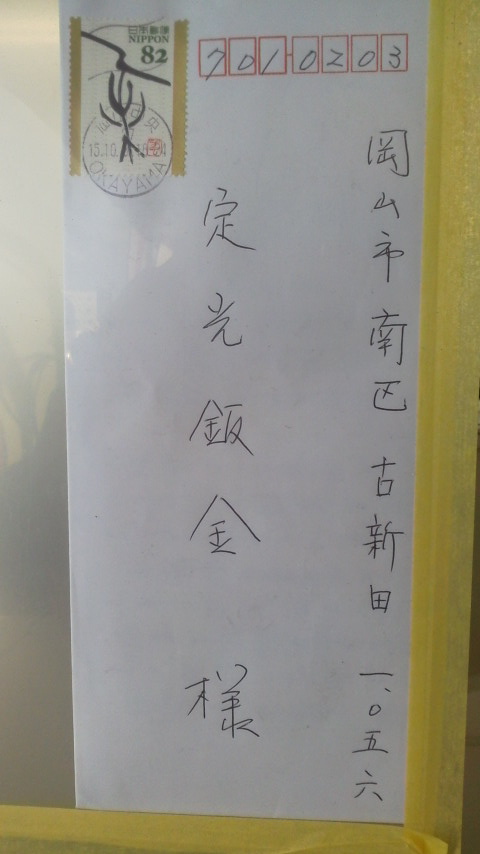 日本郵便
NIPPON
82
7010203
15.10
OKAYAMA
岡山市南区古新田一、〇五六
定光鈑金様